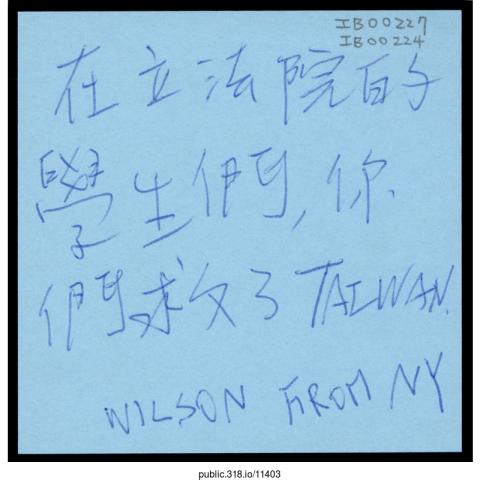 IB00227
IB00224
在立法院的
學生們,你
們救了TAIWAN.
WILSON FROM NY
public.318.io/11403